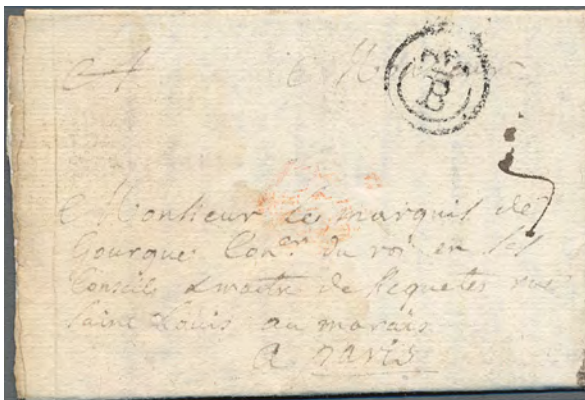 27
B
5
Monsieur le marquis de
Gourgue Con.er du roi en ses
Conseils & maitre de Requetes rue
saint Louis au marais
a paris